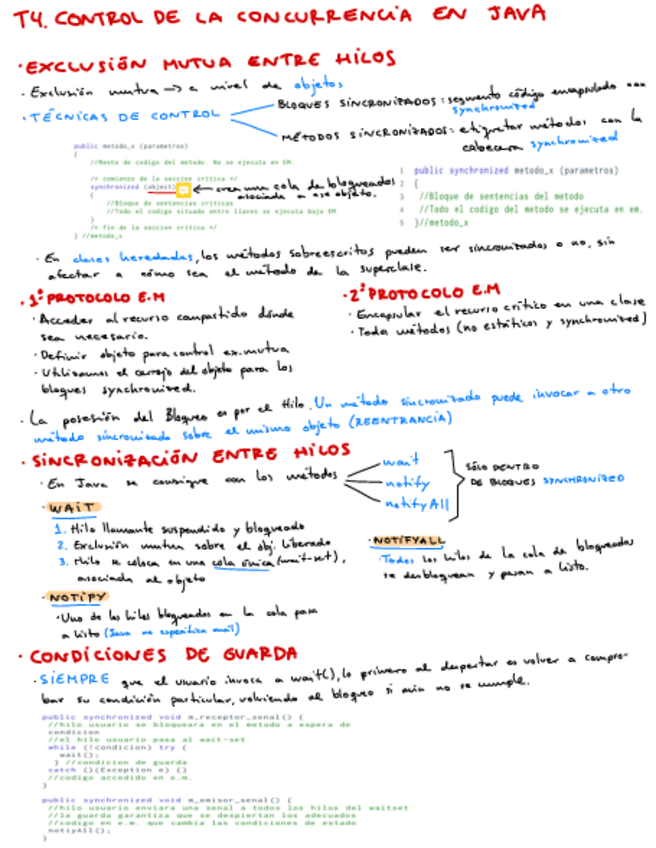 T4. CONTROL DE LA CONCURRENCIA EN JAVA
· EXCLUSIÓN MUTUA ENTRE HILOS
· Exclusión mutua → a nivel de objetos
· TÉCNICAS DE CONTROL
BLOQUES SINCRONIZADOS: segmento código encapsulado con
synchronized
MÉTODOS SINCRONIZADOS: etiquetar métodos con la
cabecera synchronized
public metodo_x (parametros)
{
//Resto de codigo del metodo. No se ejecuta en EM.
/* comienzo de la seccion critica */
synchronized (object) ← crea una cola de bloqueados
asociada a ese objeto.
{
//Bloque de sentencias criticas
//Todo el codigo situado entre llaves se ejecuta bajo EM
}
/* fin de la seccion critica */
} //metodo_x
1 public synchronized metodo_x (parametros)
2 {
3 //Bloque de sentencias del metodo
4 //Todo el codigo del metodo se ejecuta en em.
5 }//metodo_x
· En clases heredadas, los métodos sobreescritos pueden ser sincronizados o no, sin
afectar a cómo sea el método de la superclase.
· 1º PROTOCOLO E.M
· Acceder al recurso compartido dónde
sea necesario.
· Definir objeto para control ex.mutua
· Utilizamos el cerrojo del objeto para los
bloques synchronized.
· 2º PROTOCOLO E.M
· Encapsular el recurso crítico en una clase
· Todos métodos (no estáticos y synchronized)
· La posesión del Bloqueo es por el Hilo. Un método sincronizado puede invocar a otro
método sincronizado sobre el mismo objeto (REENTRANCIA)
· SINCRONIZACIÓN ENTRE HILOS
· En Java se consigue con los métodos
wait
notify
notifyAll
SÓLO DENTRO
DE BLOQUES SYNCHRONIZED
· WAIT
1. Hilo llamante suspendido y bloqueado
2. Exclusión mutua sobre el obj. liberado
3. Hilo se coloca en una cola única (wait-set),
asociada al objeto
· NOTIFYALL
Todos los hilos de la cola de bloqueados
se desbloquean y pasan a listo.
· NOTIFY
· Uno de los hilos bloqueados en la cola pasa
a listo (Java no especifica cual)
· CONDICIONES DE GUARDA
· SIEMPRE que el usuario invoca a wait(), lo primero al despertar es volver a compro-
bar su condición particular, volviendo al bloqueo si aún no se cumple.
public synchronized void m_receptor_senal() {
//hilo usuario se bloqueara en el metodo a espera de
condicion
//el hilo usuario pasa al wait-set
while (!condicion) try {
wait();
} //condicion de guarda
catch ()(Exception e) {}
//codigo accedido en e.m.
}
public synchronized void m_emisor_senal() {
//hilo usuario enviara una senal a todos los hilos del waitset
//la guarda garantiza que se despiertan los adecuados
//codigo en e.m. que cambia las condiciones de estado
notiyAll();
}